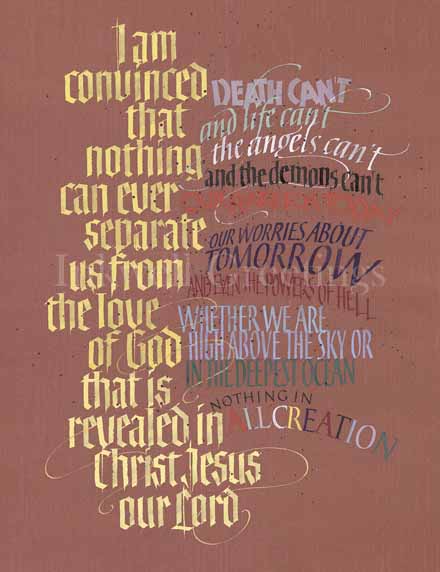 I am
convinced
that
nothing
can ever
separate
us from
the love
of God
that is
revealed in
Christ Jesus
our Lord
DEATH CAN'T
and life can't
the angels can't
and the demons can't
OUR FEARS FOR TODAY
OUR WORRIES ABOUT
TOMORROW
AND EVEN THE POWERS OF HELL
WHETHER WE ARE
HIGH ABOVE THE SKY OR
IN THE DEEPEST OCEAN
NOTHING IN
ALL CREATION